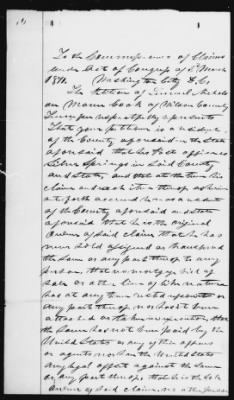 To the Commissioners of Claims
under Act of Congress of 3d March
1871. Washington City D.C.
The Petition of Samuel
Cook of Wilson County
Tenn respectfully represents
That your petitioner is a resident
of the County aforesaid in the State
aforesaid that his Post office is
Silver Springs in Said County
and State, and that at the time his
claim and each item thereof as herein
set forth accrued he was a resident
of the County aforesaid in State
aforesaid That he is the original
Owner of Said claim That he has
never Sold assigned or transferred
the Same or any part thereof to any
person. that no mortgage bill of
Sale or other lien of like nature
has at any time rested upon it or
any part thereof nor has it been
attached or taken in execution that
the Same has not been paid by the
United States or any of their officers
or agents nor have the United States
any legal offset against the Same
or any part thereof that he is the Sole
owner of Said claim